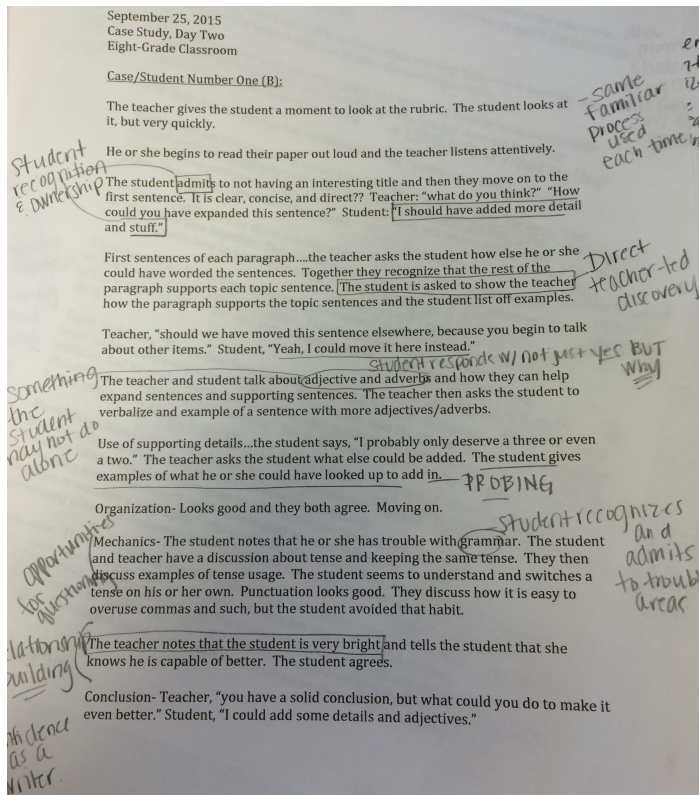 September 25, 2015
Case Study, Day Two
Eight-Grade Classroom
Case/Student Number One (B):
The teacher gives the student a moment to look at the rubric. The student looks at
it, but very quickly.
- same
familiar
process
used
each time
He or she begins to read their paper out loud and the teacher listens attentively.
student
recognition
& ownership
The student admits to not having an interesting title and then they move on to the
first sentence. It is clear, concise, and direct?? Teacher: "what do you think?" "How
could you have expanded this sentence?" Student: "I should have added more detail
and stuff."
First sentences of each paragraph....the teacher asks the student how else he or she
could have worded the sentences. Together they recognize that the rest of the
paragraph supports each topic sentence. The student is asked to show the teacher
how the paragraph supports the topic sentences and the student list off examples.
Direct
teacher-led
discovery
Teacher, "should we have moved this sentence elsewhere, because you begin to talk
about other items." Student, "Yeah, I could move it here instead."
student responds w/ not just yes BUT
why
something
the
student
may not do
alone
The teacher and student talk about adjective and adverbs and how they can help
expand sentences and supporting sentences. The teacher then asks the student to
verbalize and example of a sentence with more adjectives/adverbs.
Use of supporting details...the student says, "I probably only deserve a three or even
a two." The teacher asks the student what else could be added. The student gives
examples of what he or she could have looked up to add in.
PROBING
Organization- Looks good and they both agree. Moving on.
student recognizes
and
admits
to trouble
areas
opportunities
for
questioning
Mechanics- The student notes that he or she has trouble with grammar. The student
and teacher have a discussion about tense and keeping the same tense. They then
discuss examples of tense usage. The student seems to understand and switches a
tense on his or her own. Punctuation looks good. They discuss how it is easy to
overuse commas and such, but the student avoided that habit.
elationship
building
The teacher notes that the student is very bright and tells the student that she
knows he is capable of better. The student agrees.
nfidence
as a
writer.
Conclusion- Teacher, "you have a solid conclusion, but what could you do to make it
even better." Student, "I could add some details and adjectives."